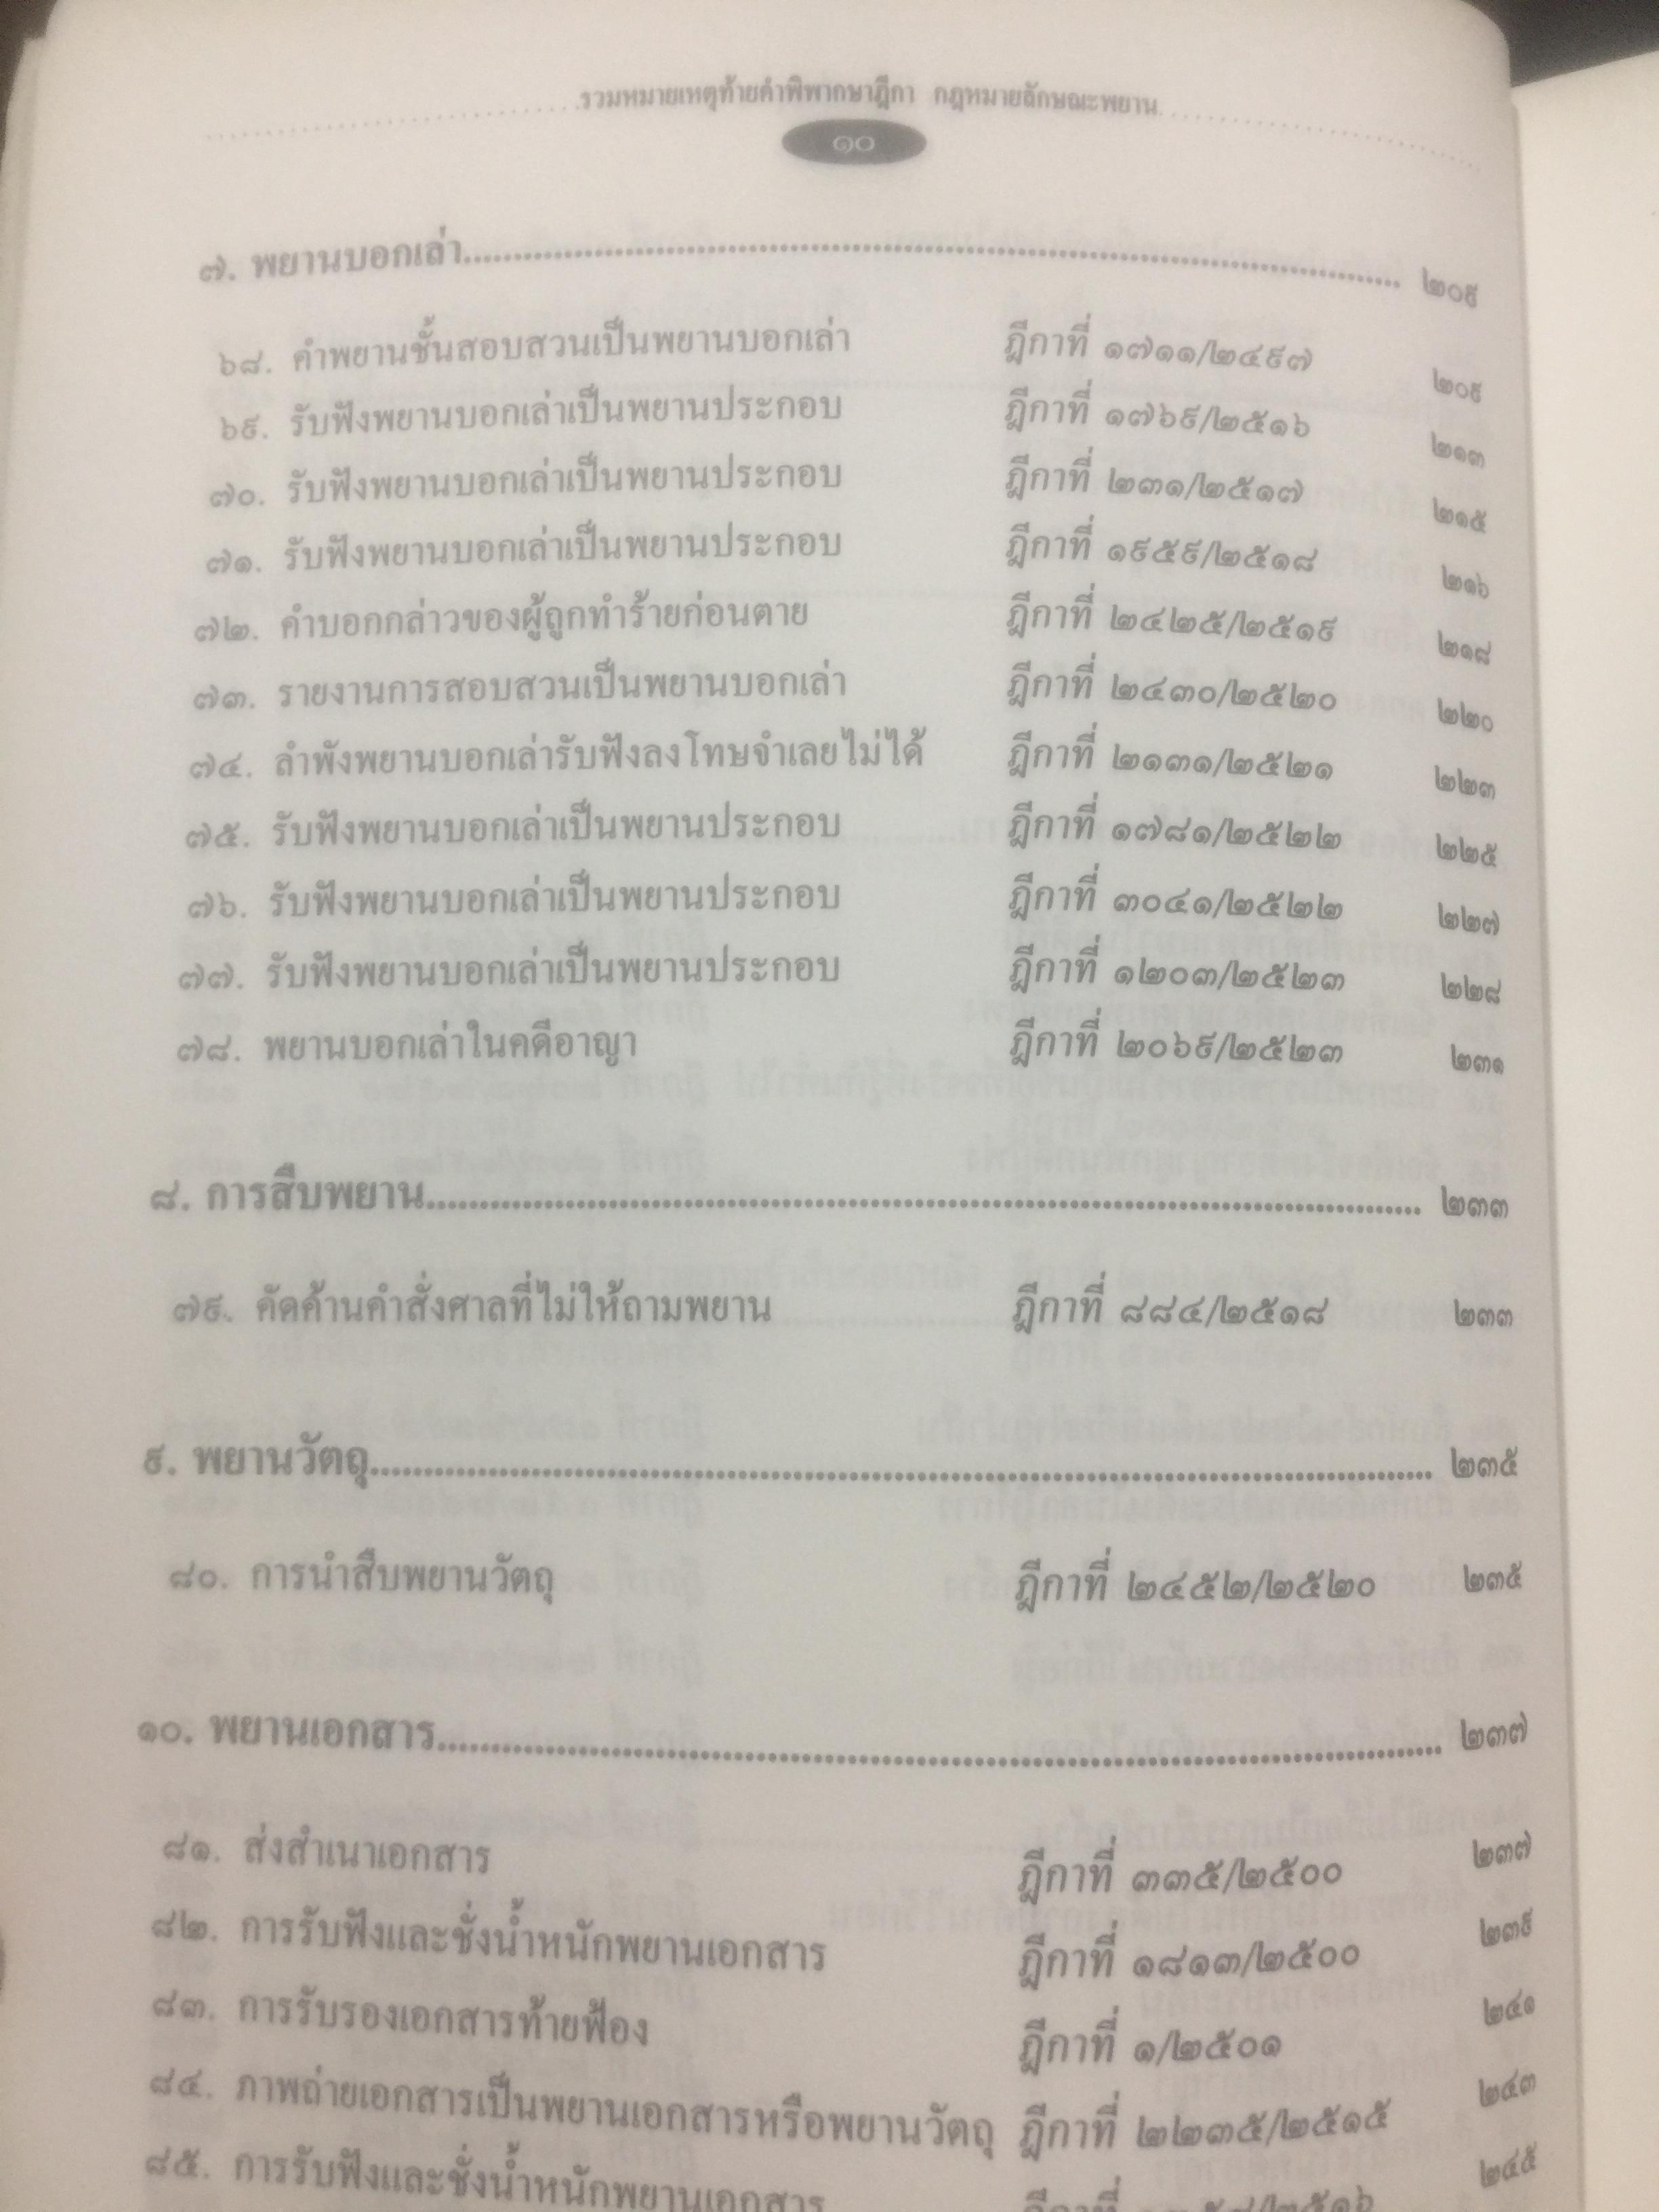 รวมหมายเหตุท้ายคำพิพากษาฎีกา กฎหมายลักษณะพยาน
๑๐
๗. พยานบอกเล่า........................................ ๒๐๙
๖๘. คำพยานชั้นสอบสวนเป็นพยานบอกเล่า ฎีกาที่ ๑๗๑๑/๒๔๙๗ ๒๐๙
๖๙. รับฟังพยานบอกเล่าเป็นพยานประกอบ ฎีกาที่ ๑๗๖๙/๒๕๑๖ ๒๑๓
๗๐. รับฟังพยานบอกเล่าเป็นพยานประกอบ ฎีกาที่ ๒๓๑/๒๕๑๗ ๒๑๕
๗๑. รับฟังพยานบอกเล่าเป็นพยานประกอบ ฎีกาที่ ๑๙๕๙/๒๕๑๘ ๒๑๖
๗๒. คำบอกกล่าวของผู้ถูกทำร้ายก่อนตาย ฎีกาที่ ๒๔๒๕/๒๕๑๙ ๒๑๘
๗๓. รายงานการสอบสวนเป็นพยานบอกเล่า ฎีกาที่ ๒๔๓๐/๒๕๒๐ ๒๒๐
๗๔. ลำพังพยานบอกเล่ารับฟังลงโทษจำเลยไม่ได้ ฎีกาที่ ๒๑๓๑/๒๕๒๑ ๒๒๓
๗๕. รับฟังพยานบอกเล่าเป็นพยานประกอบ ฎีกาที่ ๑๗๘๑/๒๕๒๒ ๒๒๕
๗๖. รับฟังพยานบอกเล่าเป็นพยานประกอบ ฎีกาที่ ๓๐๔๑/๒๕๒๒ ๒๒๗
๗๗. รับฟังพยานบอกเล่าเป็นพยานประกอบ ฎีกาที่ ๑๒๐๓/๒๕๒๓ ๒๒๘
๗๘. พยานบอกเล่าในคดีอาญา ฎีกาที่ ๒๐๖๙/๒๕๒๓ ๒๓๑
๘. การสืบพยาน........................................ ๒๓๓
๗๙. คัดค้านคำสั่งศาลที่ไม่ให้ถามพยาน ฎีกาที่ ๘๘๔/๒๕๑๘ ๒๓๓
๙. พยานวัตถุ........................................ ๒๓๕
๘๐. การนำสืบพยานวัตถุ ฎีกาที่ ๒๔๕๒/๒๕๒๐ ๒๓๕
๑๐. พยานเอกสาร........................................ ๒๓๗
๘๑. ส่งสำเนาเอกสาร ฎีกาที่ ๓๓๕/๒๕๐๐ ๒๓๗
๘๒. การรับฟังและชั่งน้ำหนักพยานเอกสาร ฎีกาที่ ๑๘๑๓/๒๕๐๐ ๒๓๙
๘๓. การรับรองเอกสารท้ายฟ้อง ฎีกาที่ ๑/๒๕๐๑ ๒๔๑
๘๔. ภาพถ่ายเอกสารเป็นพยานเอกสารหรือพยานวัตถุ ฎีกาที่ ๒๒๓๕/๒๕๑๕ ๒๔๓
๘๕. การรับฟังและชั่งน้ำหนักพยานเอกสาร ฎีกาที่ ๒๔๕